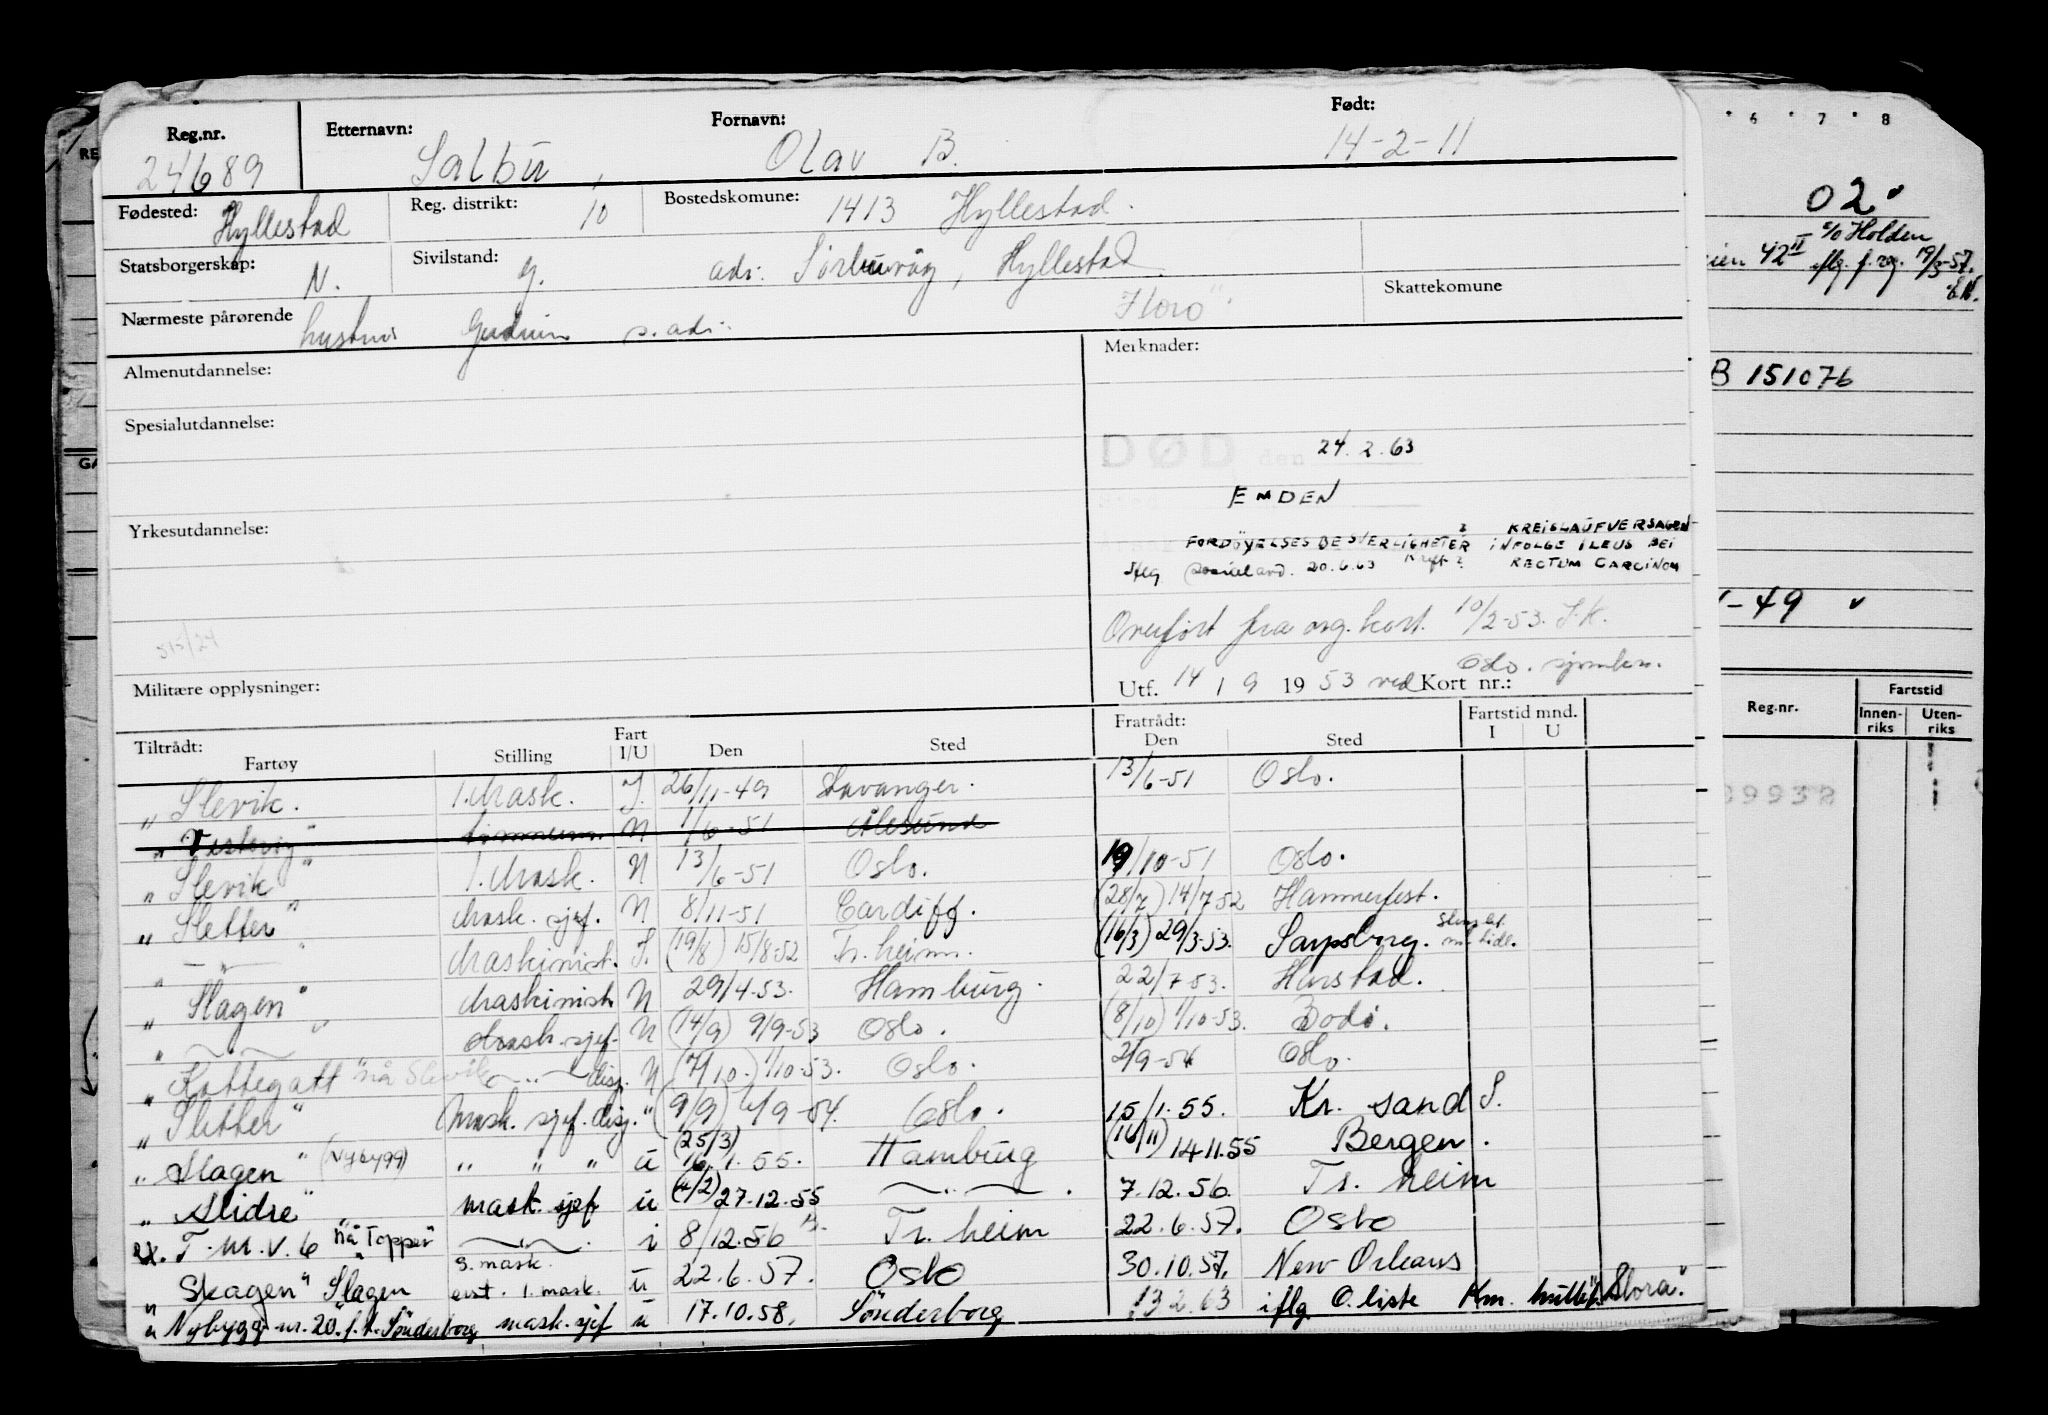 Reg.nr. Etternavn: Fornavn: Født:
24689 Salbu, Olav B. 14-2-11
Fødested: Hyllestad Reg. distrikt: 10 Bostedskomune: 1413 Hyllestad.
Statsborgerskap: N. Sivilstand: g. adr. Hyllestad
Nærmeste pårørende hustru Gudrun s. adr. Florø Skattekomune
Almenutdannelse: Merknader:
Spesialutdannelse:
DØD den 24.2.63
EMDEN
Yrkesutdannelse:
FORDÖYELSESBESVERLIGHETER ? KREISLAUFVERSAGEN
iflg sosialavd. 20.6.63 Kreft? INFOLGE ILEUS BEI
RECTUM CARCINOM
515/24
Overført fra org. kort. 10/2-53. S.K.
Oslo. sjømkr.
Militære opplysninger: Utf. 14 / 9 1953 ved Kort nr.:
Tiltrådt: Fart Fratrådt: Fartstid mnd.
Fartøy Stilling I/U Den Sted Den Sted I U
" Slevik. 1. Mask. I. 26/11-49 Stavanger. 13/6-51 Oslo.
" Vestvig" N 1/6-51 Ålesund
" Slevik" 1. Mask. N 13/6-51 Oslo. 19/10-51 Oslo.
" Sletter" Mask. sjef. N 8/11-51 Cardiff. (28/7) 14/7-52 Hammerfest.
" — " — Maskinist. I. (19/8) 15/8-52 Tr. heim. (16/3) 29/3-53. Sarpsborg.
" Slagen" Maskinist N 29/4-53. Hamburg. 22/7-53. Harstad.
" — " — Mask. sjef. N (14/9) 9/9-53 Oslo. (8/10) 1/10-53. Bodö.
" Kattegatt" nå Slevik — " — disp. N (7/10.) 1/10-53. Oslo. 2/9-54 Oslo.
" Sletter" Mask. sjef. disp. " (9/9) 4/9-54. Oslo. 15/1.55. Kr. sand S.
" Slagen" (Nybygg) " " " u (25/3) 16/1.55. Hamburg (16/11) 14.11.55 Bergen.
" Slidre" mask. sjef u (4/2) 27.12.55 — " — . 7.12.56. Tr. heim
ex. T.M.V. 6 nå Topper" — " — . i 8/12.56 Tr. heim 22.6.57. Oslo
Skagen" Slagen 3. mask. avst. 1. mask. u 22.6.57. Oslo 30.10.57. New Orleans
" Nybygg nr. 20" f.t. Sönderborg mask. sjef u 17.10.58. Sönderborg 13 2.63 iflg. O. liste Km. "Slora".
02
c/o Holden
eien 42 II iflg. f. reg. 19/3-57.
B 151076
-49
Reg.nr. Fartstid
Innen-riks Uten-riks
6 7 8